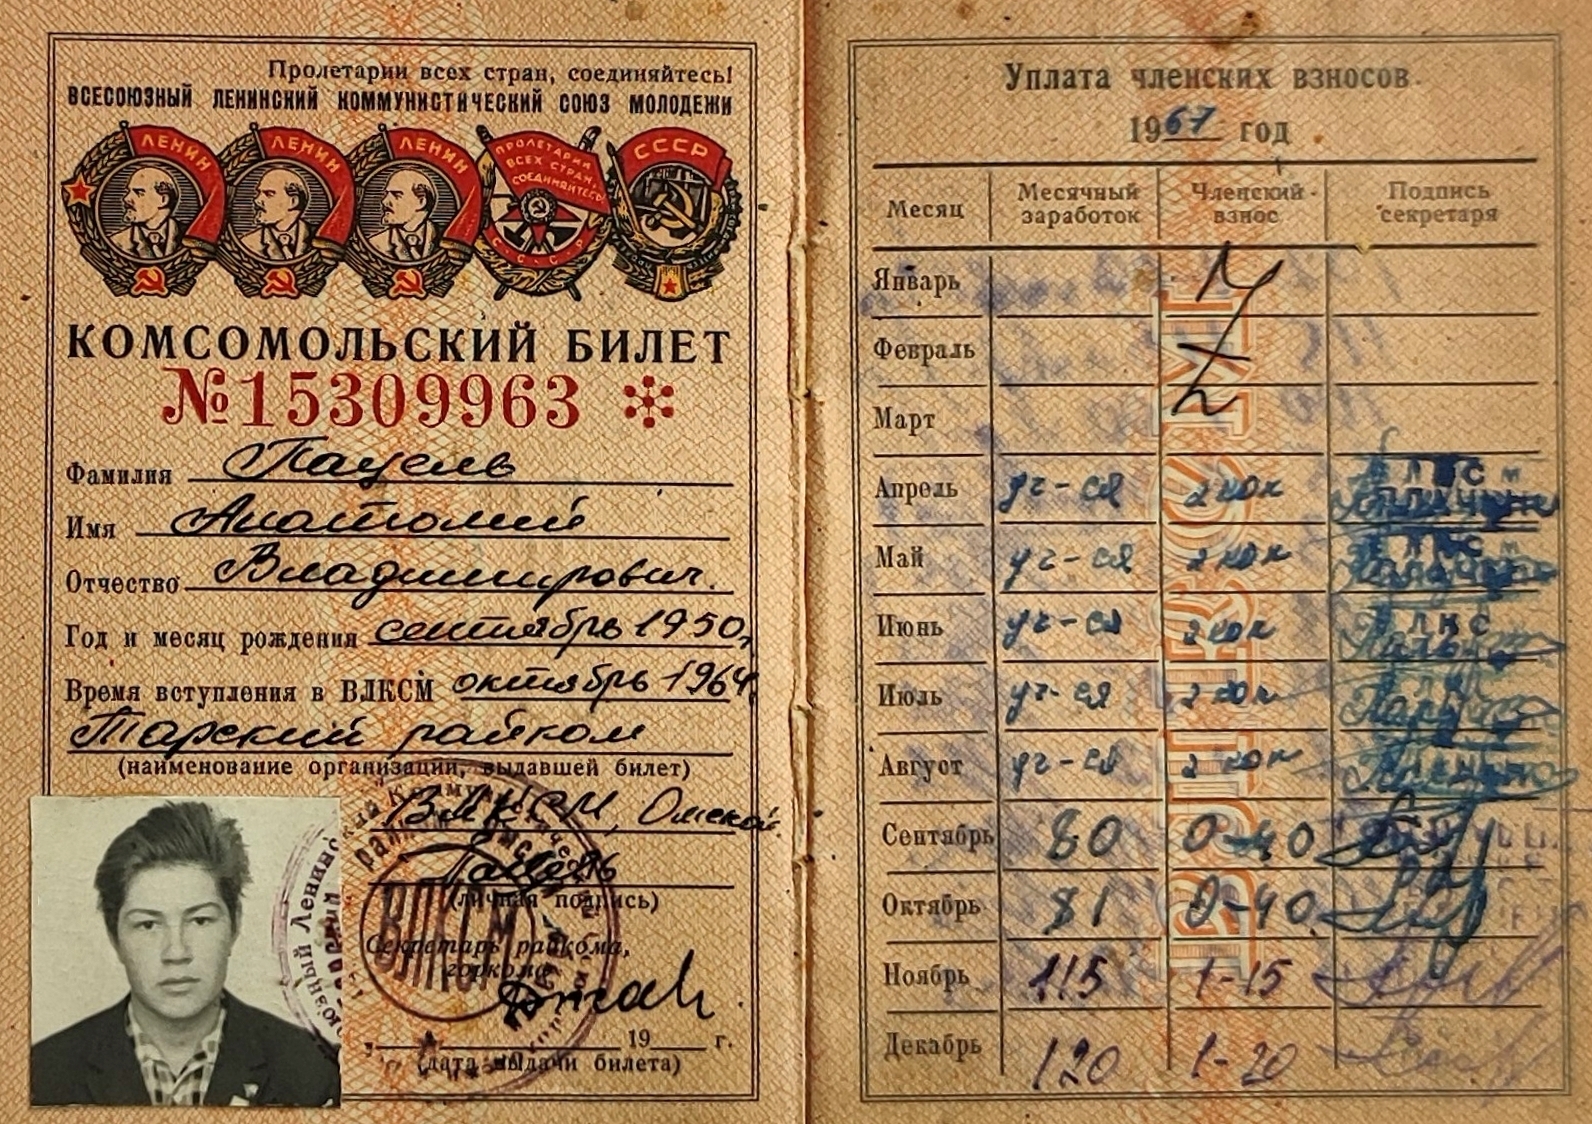 Пролетарии всех стран, соединяйтесь!
ВСЕСОЮЗНЫЙ ЛЕНИНСКИЙ КОММУНИСТИЧЕСКИЙ СОЮЗ МОЛОДЕЖИ
ЛЕНИН ЛЕНИН ЛЕНИН ПРОЛЕТАРИИ ВСЕХ СТРАН, СОЕДИНЯЙТЕСЬ! СССР
С С С Р
КОМСОМОЛЬСКИЙ БИЛЕТ
№15309963
Фамилия Пацель
Имя Анатолий
Отчество Владимирович.
Год и месяц рождения сентябрь 1950,
Время вступления в ВЛКСМ октябрь 1964,
Тарский райком
(наименование организации, выдавшей билет)
ВЛКСМ, Омской
Пацель
(личная подпись)
ВЛКСМ
Секретарь райкома,
горкома
19 г.
(дата выдачи билета)
Уплата членских взносов
1967 год
Месяц Месячный заработок Членский взнос Подпись секретаря
Январь
Февраль
Март
Апрель уч-ся 2 коп
Май уч-ся 2 коп
Июнь уч-ся 2 коп
Июль уч-ся 2 коп
Август уч-ся 2 коп
Сентябрь 80 0-40
Октябрь 81 0-40
Ноябрь 115 1-15
Декабрь 120 1-20
ВЛКСМ